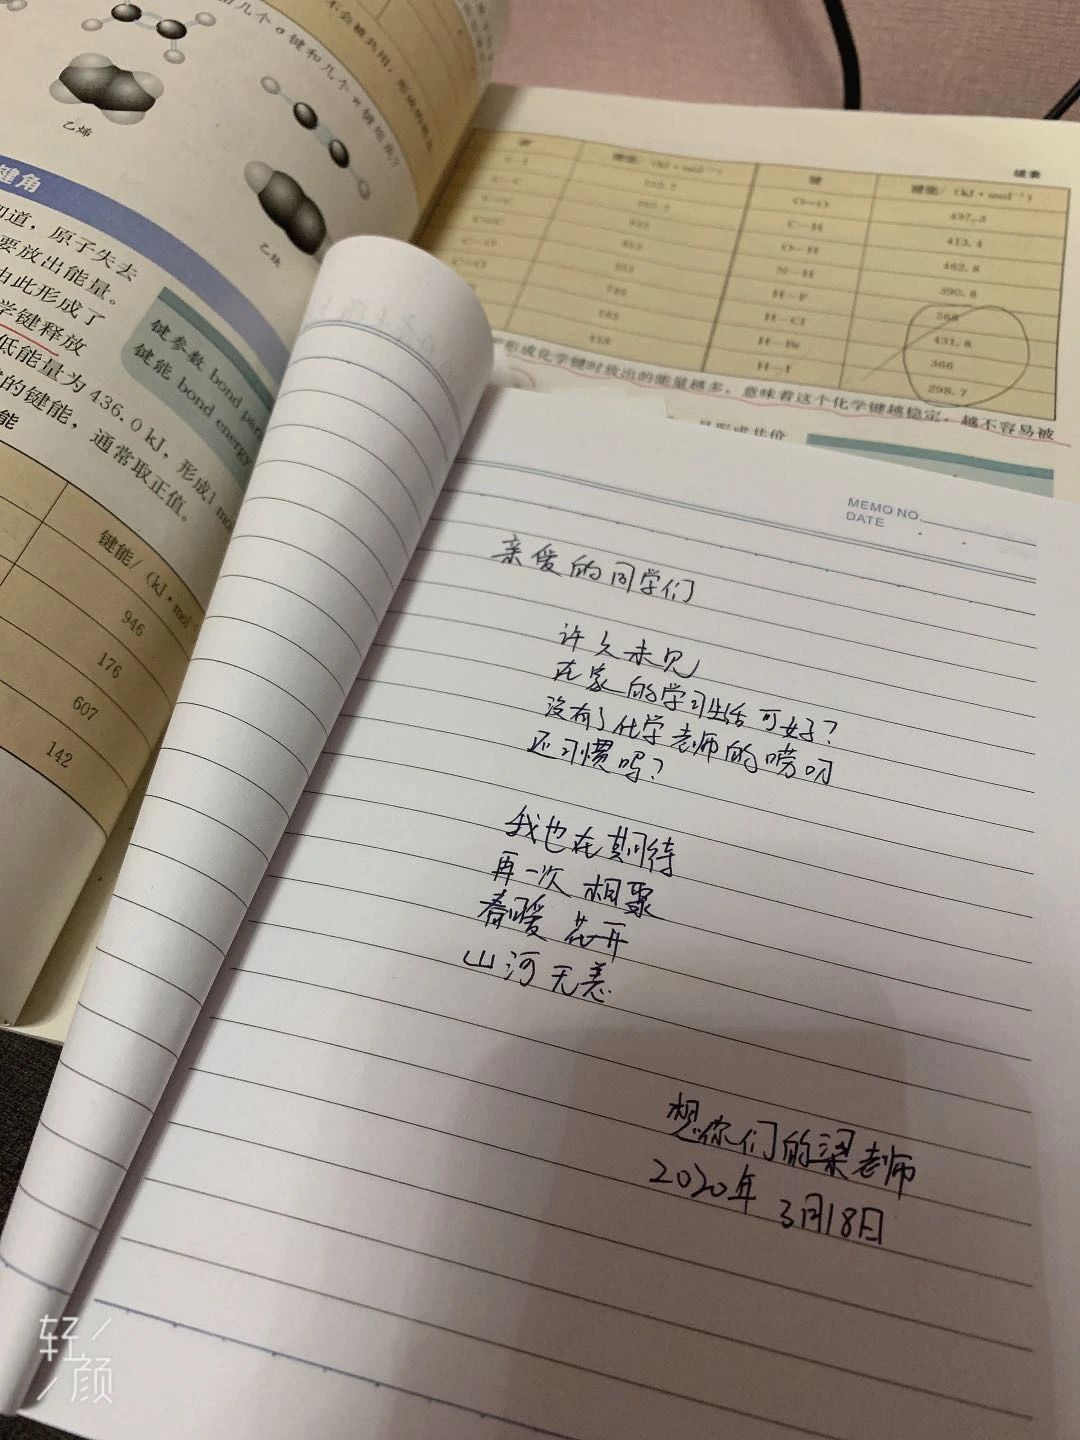 乙烯
乙炔
键角
知道，原子失去
要放出能量。
由此形成了
学键释放
低能量为436.0 kJ，形成1 mol
的键能，通常取正值。
键参数 bond para
键能 bond energy
键能/（kJ·mol⁻¹
946
176
607
142
续表
键
键能/（kJ·mol⁻¹）
键
键能/（kJ·mol⁻¹）
O—O
497.3
C—H
413.4
O—H
462.8
N—H
390.8
H—F
568
H—Cl
431.8
H—Br
366
H—I
298.7
形成化学键时放出的能量越多，意味着这个化学键越稳定，越不容易被
MEMO NO.
DATE
亲爱的同学们
许久未见
在家的学习生活可好？
没有了化学老师的唠叨
还习惯吗？
我也在期待
再一次相聚
春暖花开
山河无恙
想你们的梁老师
2020年3月18日
轻颜